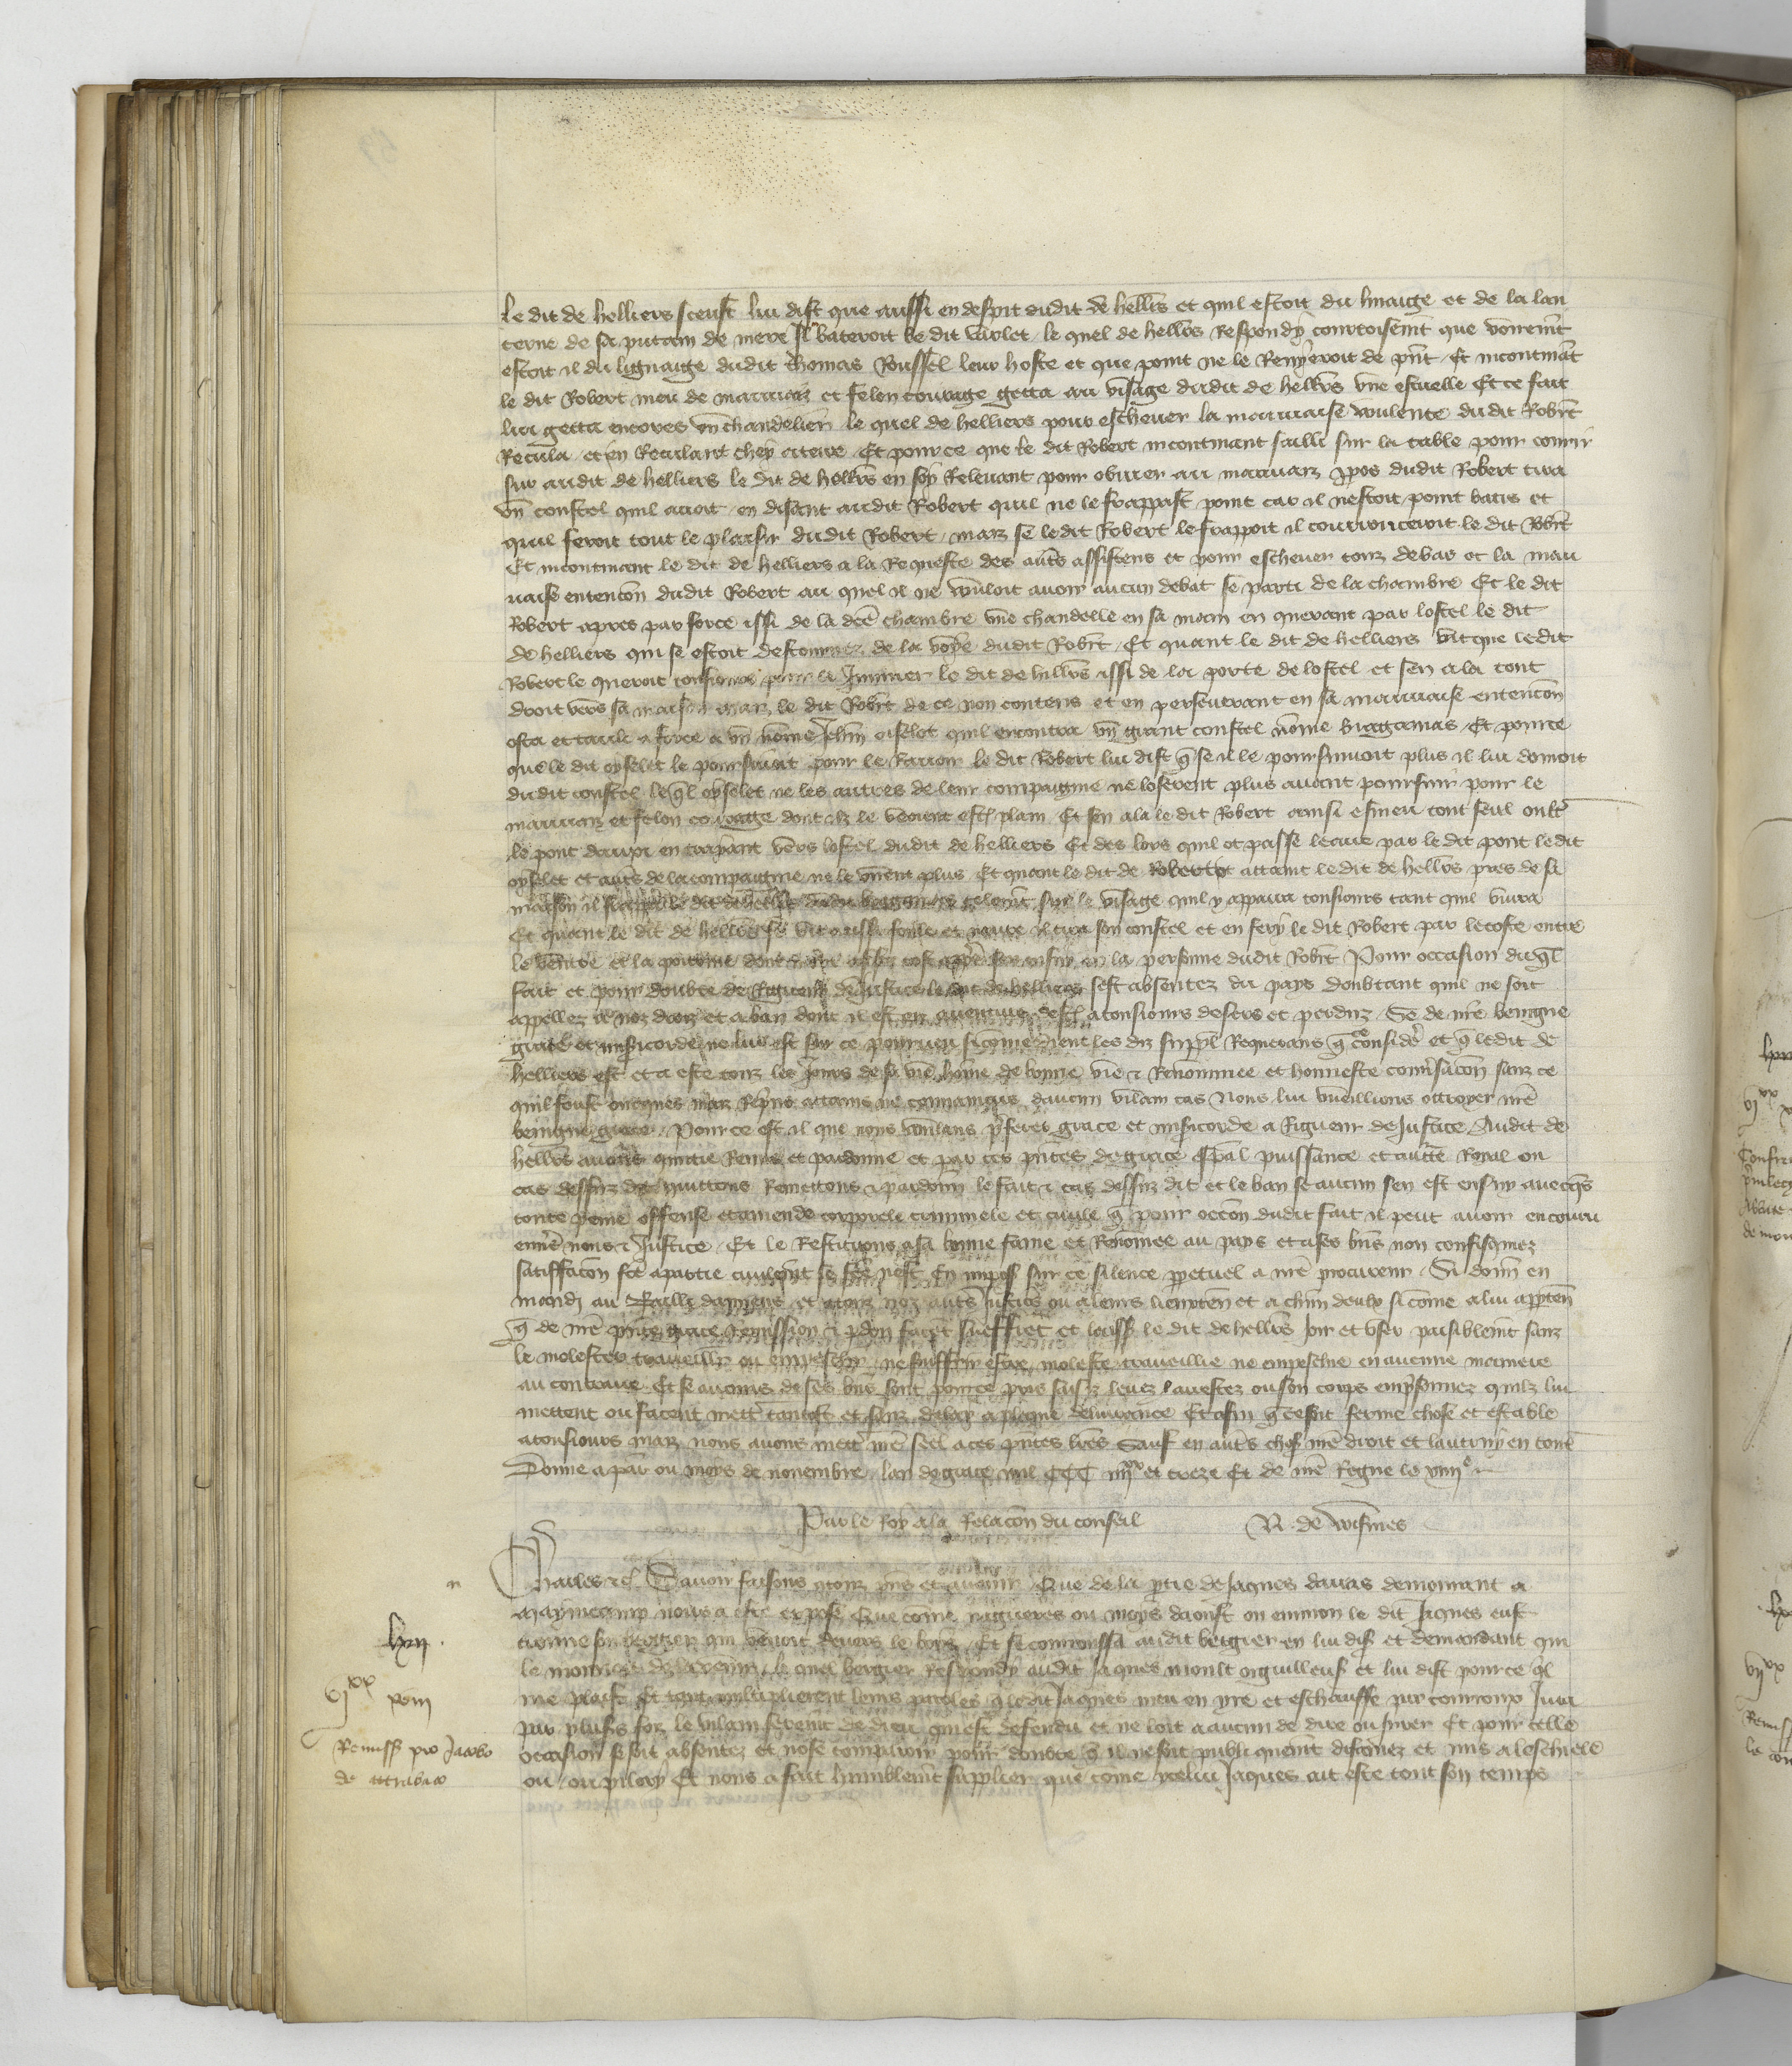 le dit de helliers sceust lui dist que aussi en despit dudit de hellrs et quil estoit du linaige et de la lan
terne de sa putain de mere Il bateroit le dit varlet le quel de hellrs Respondy courtoisemt que vrayemt
estoit il du lignaige dudit Thomas Roussel leur hoste et que point ne le Renyeroit de pnt Et incontinat
le dit Robert meu de mauuaiz et felon courage getta au visage dudit de hellrs vne escuelle Et ce fait
lui getta encores vn chandelier le quel de helliers pour escheuer la mauuaise voulente dudit Robrt
Recula et en Reculant chey arriere Et pour ce que le dit Robert incontinant sailli sur la table pour courir
sur audit de helliers le dit de hellrs en soy Releuant pour obuier au mauuaiz ppos dudit Robert tira
vn coustel quil auoit en disant audit Robert quil ne le frappast point car il nestoit point batus et
quil feroit tout le plaisir dudit Robert maiz se ledit Robert le frappoit il courrouceroit le dit Robrt
Et incontinant le dit de helliers a la Requeste des autrs assistens et pour escheuer touz debas et la mau
uaise entencon dudit Robert au quel il ne vouloit auoir aucun debat se parti de la chambre Et le dit
Robert apres par force issi de la dce chambre vne chandelle en sa main en querant par lostel le dit
de helliers qui se estoit destournez de la voye dudit Robrt Et quant le dit de helliers vit que ledit
Robert le queroit tousiours pour le Iniurier le dit de hellrs issi de la porte de lostel et sen ala tout
droit vers sa maison maiz le dit Robrt de ce non contens et en perseuerant en sa mauuaise entencon
osta et tauli a force a vn nome Jehn oiselet quil encontra vn grant coustel nome bragamas Et pource
que le dit oyselet le poursuiuit pour le Rauoir le dit Robert lui dist q se il le poursuiuoit plus il lui donroit
dudit coustel leql oyselet ne les autres de leur compaignie ne loserent plus auant poursuir pour le
mauuaiz et felon courage dont ilz le veoient estre plain Et sen ala le dit Robert ainsi esmeu tout seul oultr
le pont en trapant vers lostel dudit de helliers Et des lors quil ot passe leaue par le dit pont le dit
oyselet et autrs de la compaignie ne le virent plus Et quant le dit de Robert ot attaint le dit de hellrs pres de sa
maison il frappa le dit de hellrs dudit bragamas telemt sur le visage quil y apparra tousiours tant quil viura
Et quant le dit de hellrs se vit aussi et naure il tira son coustel et en fery le dit Robert par le coste entre
le ventre et la poitrine dont mort assez tost apres sen ensuy en la personne dudit Robrt Pour occasion duql
fait et pour doubte de Rigueur de Justice le dit de helliers sest absentez du pays doubtant quil ne soit
appellez a noz droiz et a ban dont il est en auenture destre a tousiours desers et perduz Se de nre benigne
grace et misericorde ne lui est sur ce pourueu sicome dient les diz suppl Requerans q ce consider et q ledit de
helliers est et a este touz les Jours de sa vie home de bonne vie & Renommee et honneste conuersacon sanz ce
quil feust oncques maiz Reprins attains ne conuaincus daucun vilain cas Nous lui vueillions ottroyer nre
benigne grace Pour ce est il que nous voulans pferer grace et misericorde a Rigueur de Justice Audit de
hellrs auons quittie Remis et pardonne et par ces pntes de grace espal puissance et auctte Royal ou
cas dessuz dit quittons Remettons & pardonn le fait & cas dessuz dit et le ban se aucun sen est ensuy auecqs
toute peine offense et amende corporele criminele et ciuile q pour occon dudit fait il peut auoir encouru
enuers nous & Justice Et le Restituons a sa bonne fame et Renomee au pays et a ses bns non confisquez
satiffacon fce a partie ciuilemt se fce nest En impos sur ce silence ppetuel a nre procureur Si donn en
mandt au Bailli damiens et a touz noz autrs Justics ou a leurs lieuxten et a chun deulx si come a lui appten
q de nre pnte grace Remission & pdon facet sueffret et laiss le dit de hellrs Joir et vser paisiblemt sanz
le molester trauaillr ou empeschr ne souffrir estre moleste trauaillie ne empeschie en aucune maniere
au contraire Et se aucuns de ses bns sont pource pris saisiz leuez arrestez ou son corps emprisonnez quilz lui
mettent ou facent mettr tantost et sanz delay a pleine deliurance Et afin q ce soit ferme chose et estable
a tousiours maiz nous auons mettr nre seel a ces pntes lres Sauf en autrs choss nre droit et lautruy en tout
Donne a par ou moys de nouembre lan de grace mil CCC iiijxx et treze Et de nre Regne le xiiije
Par le Roy a la Relacon du conseil N. de voisines
Charles &c Sauoir faisons a touz pns et auenir Que de la ptie de Jaques darras demourant a
nous a este expose Que come nagueres ou moys daoust ou enuiron le dit Jaques eust
trouue son bergier qui venoit deuers le boys Et se courroussa audit bergier en lui dis et demandant qui
le mouuoit de venir le quel bergier Respondy audit Jaques moult orguilleus et lui dist pource ql
me plaist Et tant multiplierent leurs paroles q ledit Jaques meu en yre et eschauffe par courroux Jura
par plusrs foiz le vilain seremt de dieu qui est defendu et ne loit a aucun de dire ou Jurer Et pour celle
occasion se soit absentez et nose comparoir pour doubte q il ne soit publiquemt disamez et mis a leschiele
ou ou pilory Et nous a fait humblemt supplier que come ycelui Jaques ait este tout son temps
lxij
vjxx xviij
Remiss pro Jacobo
de attrabato